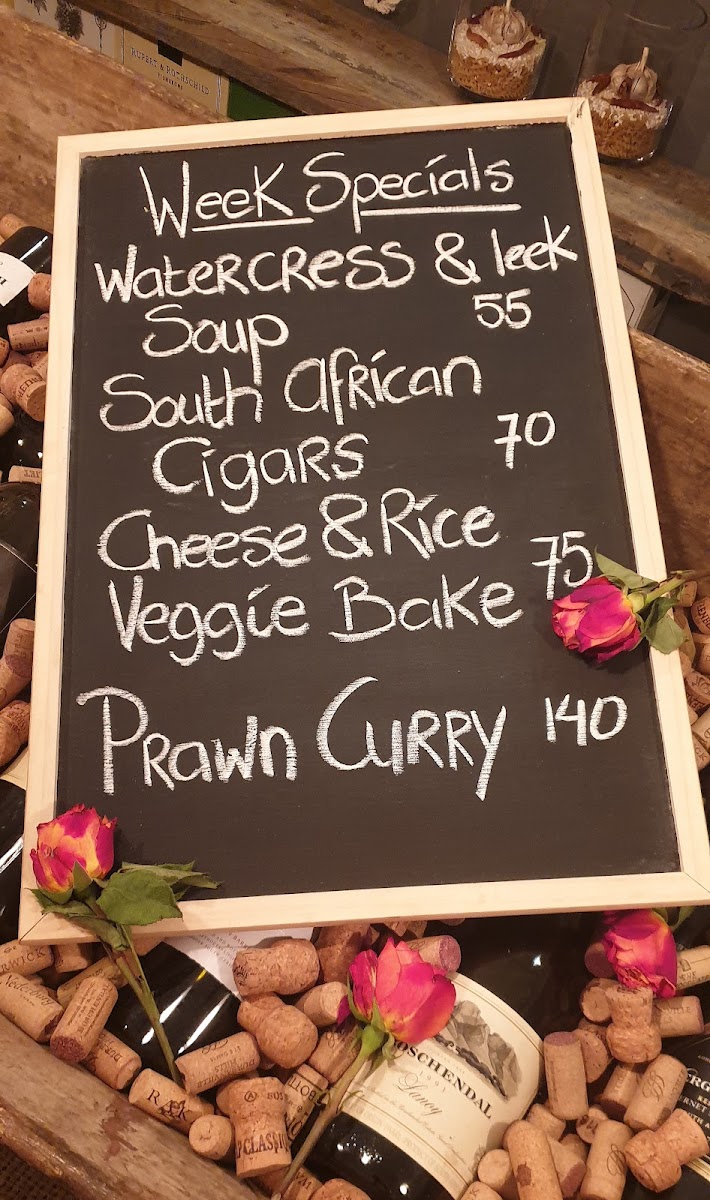 RUPERT & ROTHSCHILD
Week Specials
Watercress & leek
Soup 55
South African
Cigars 70
Cheese & Rice
Veggie Bake 75
Prawn Curry 140
OSCHENDAL
1991
Lanoy